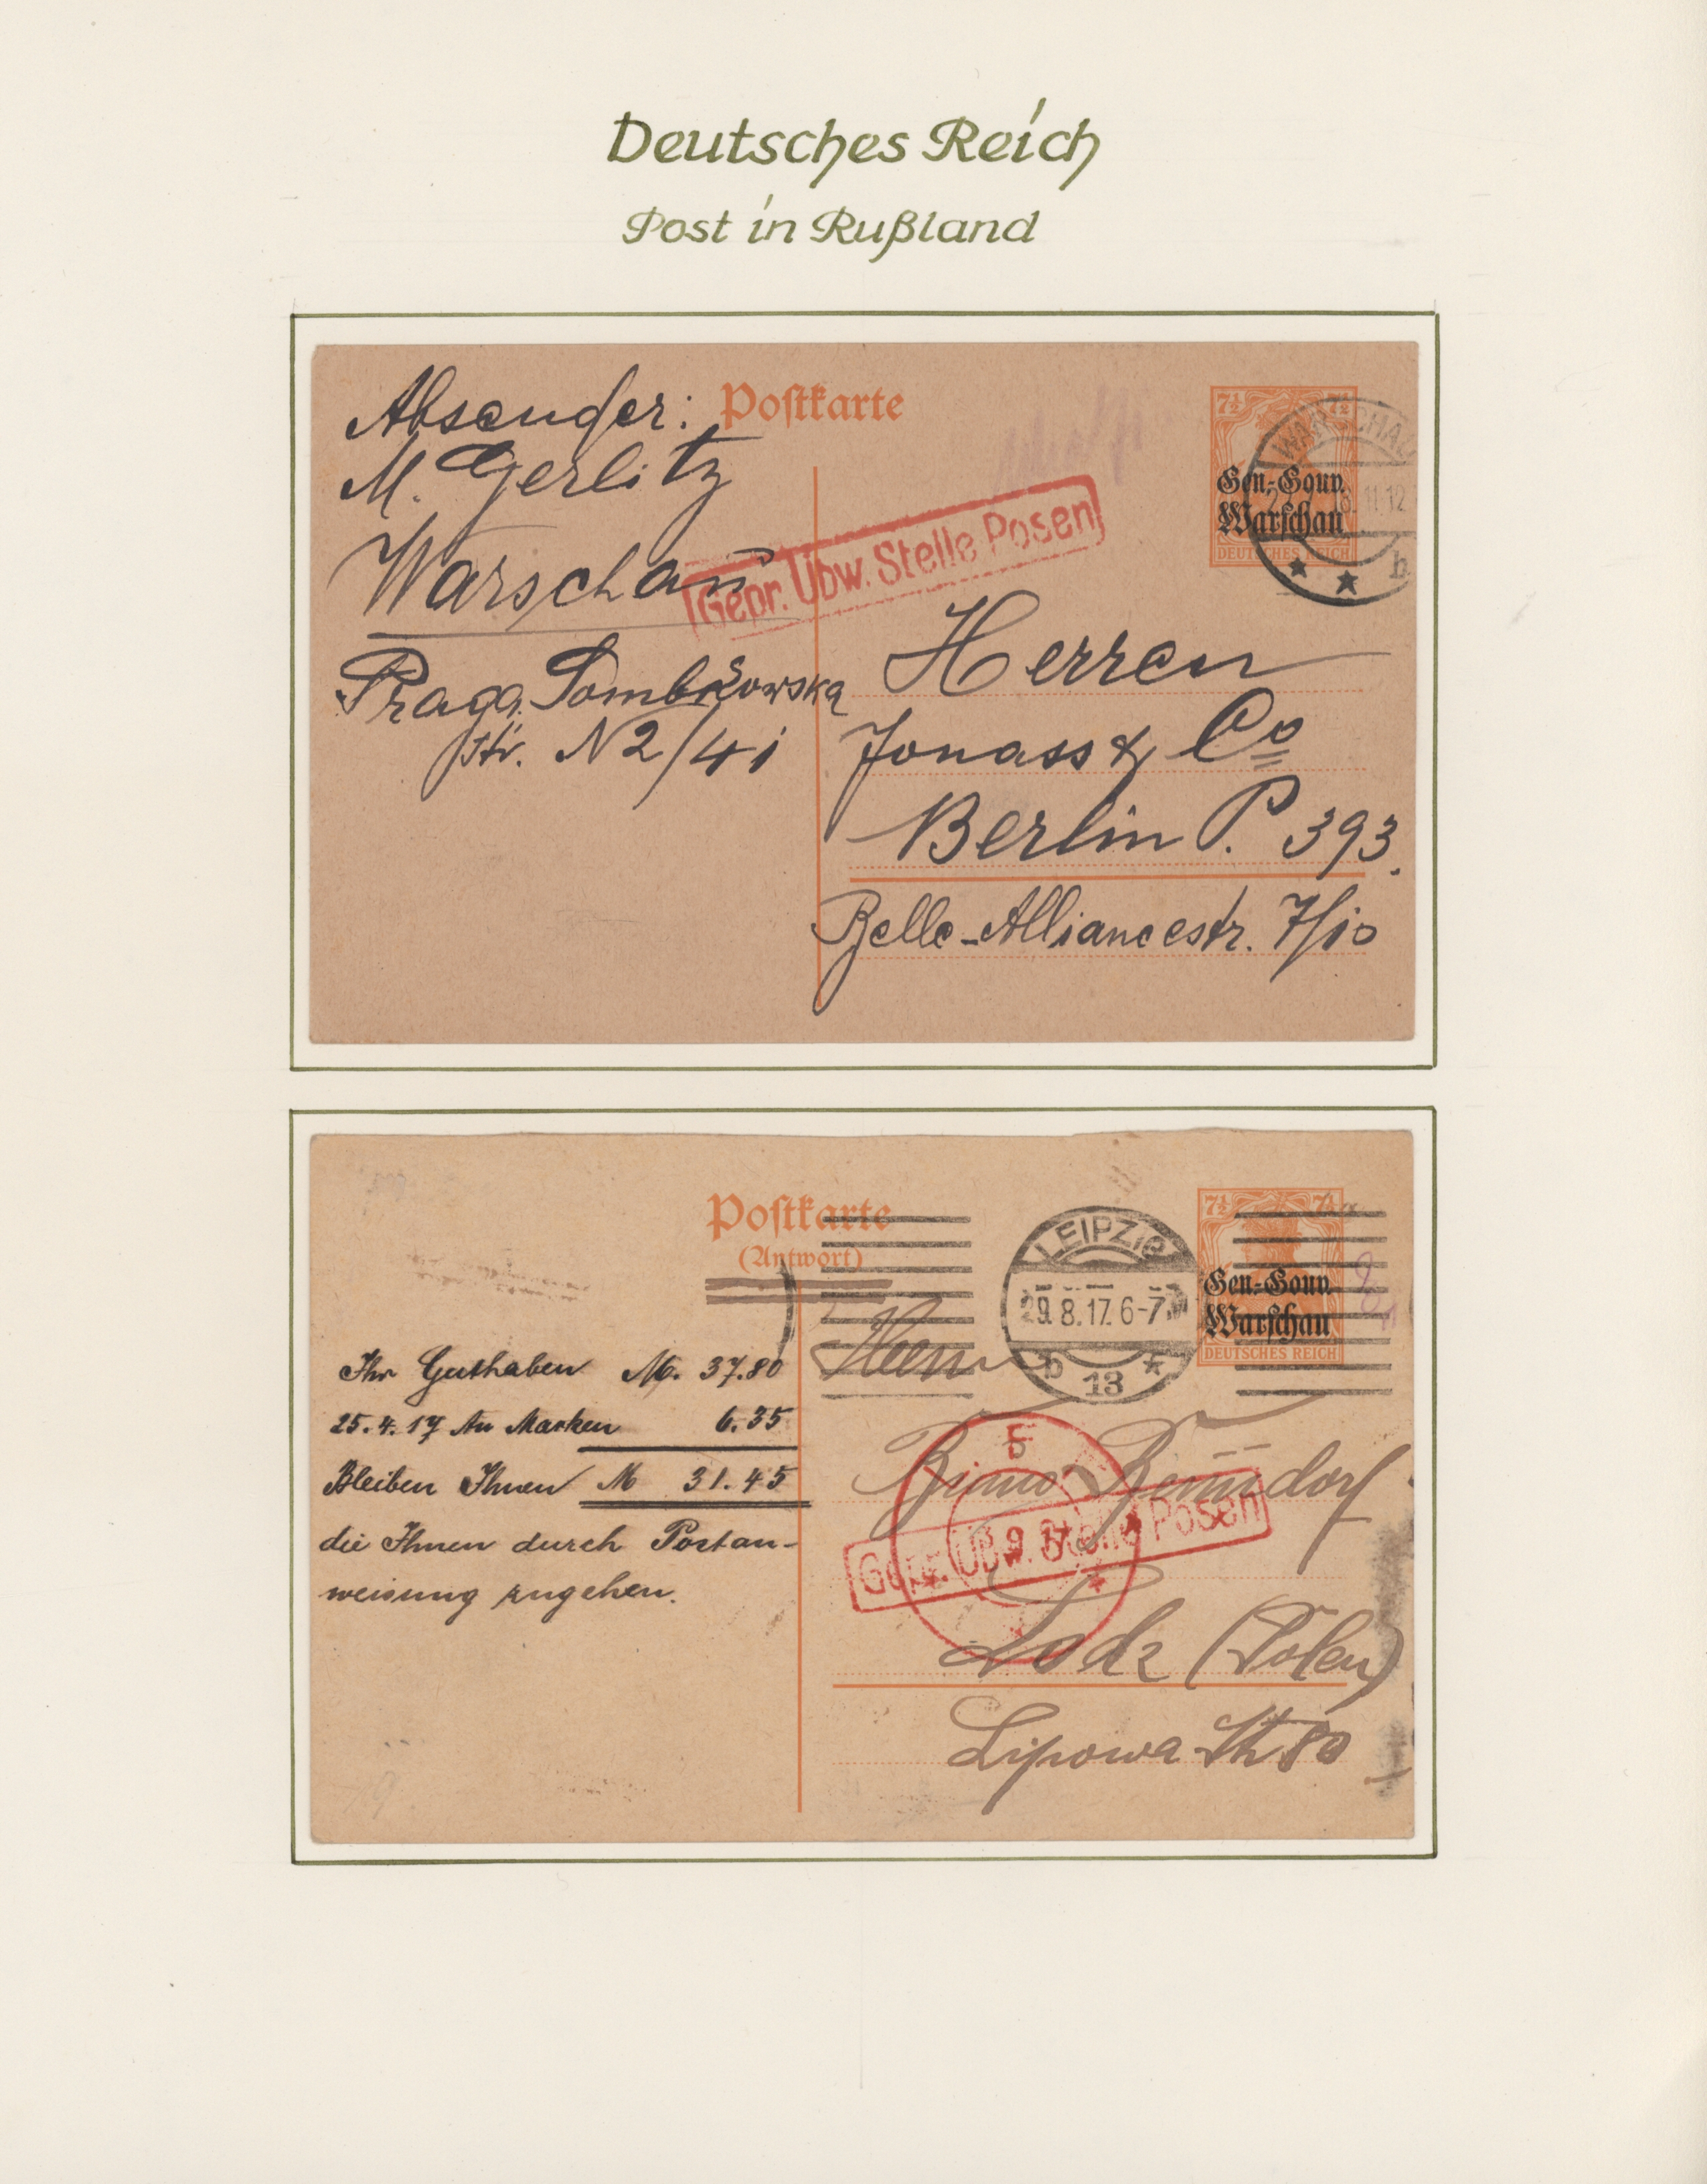 Deutsches Reich
Post in Rußland
Absender:
M. Gerlitz
Warschau
Praga
Str. N 2/41
Postkarte
Gepr. Übw. Stelle Posen
7½ 7½
Gen.-Gouv.
Warschau
DEUTSCHES REICH
WARSCHAU
11-12
b
Herren
Jonass & Co
Berlin P. 393.
Belle-Alliancestr. 7/10
Postkarte
(Antwort)
LEIPZIG
29.8.17. 6-7
b 13
7½
Gen.-Gouv.
Warschau
DEUTSCHES REICH
Ihr Guthaben M. 37.80
25.4.17 An Marken 6.35
Bleiben Ihnen M 31.45
die Ihnen durch Postan-
weisung zugehen.
Herrn
Gepr. Übw. Stelle Posen
Lodz (Polen)
Lipowa Str 80